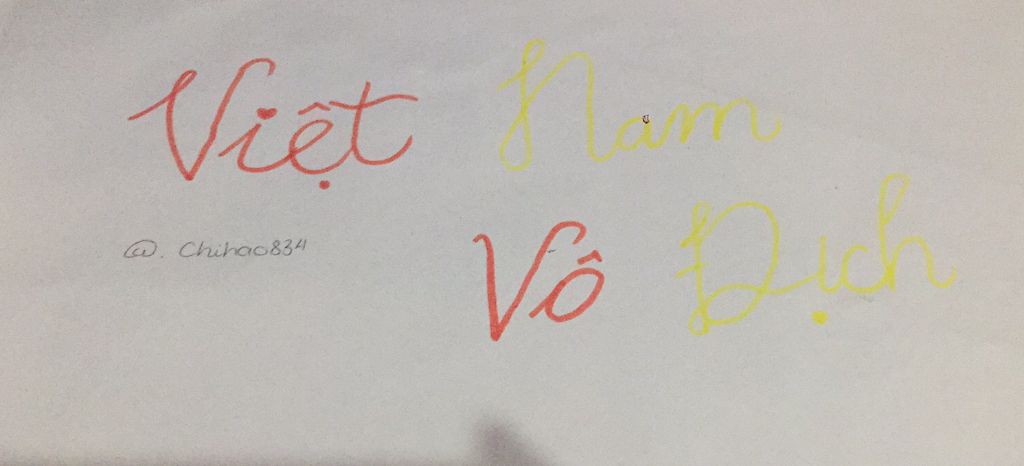 Việt Nam
@. Chihao834
Vô Dịch